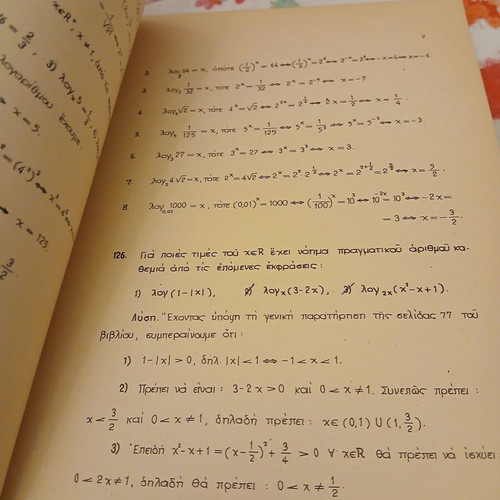 9
2. λογ½64 = x, ὁπότε (1/2)ˣ = 64 ⇔ (1/2)ˣ = 2⁶ ⇔ 2⁻ˣ = 2⁶ ⇔ -x = 6 ⇔ x = -6.
3. λογ₂ 1/32 = x, τότε 2ˣ = 1/32 ⇔ 2ˣ = 2⁻⁵ ⇔ x = -5
4. λογ₄√2 = x, τότε 4ˣ = √2 ⇔ 2²ˣ = 2^½ ⇔ 2x = 1/2 ⇔ x = 1/4.
5. λογ₅ 1/125 = x, τότε 5ˣ = 1/125 ⇔ 5ˣ = 1/5³ ⇔ 5ˣ = 5⁻³ ⇔ x = -3.
6. λογ₃ 27 = x, τότε 3ˣ = 27 ⇔ 3ˣ = 3³ ⇔ x = 3.
7. λογ₂4√2 = x, τότε 2ˣ = 4√2 ⇔ 2ˣ = 2²·2^½ ⇔ 2ˣ = 2^(2+½) = 2^(5/2) ⇔ x = 5/2.
8. λογ₀,₀₁1000 = x, τότε (0,01)ˣ = 1000 ⇔ (1/100)ˣ = 10³ ⇔ 10⁻²ˣ = 10³ ⇔ -2x =
= 3 ⇔ x = -3/2.
126. Γιά ποιές τιμές τοῦ x∈R ἔχει νόημα πραγματικοῦ ἀριθμοῦ κα-
θεμιά ἀπό τίς ἑπόμενες ἐκφράσεις :
1) λογ(1-|x|), 2) λογₓ(3-2x), 3) λογ₂ₓ(x²-x+1).
Λύση. Ἔχοντας ὑπόψη τή γενική παρατήρηση τῆς σελίδας 77 τοῦ
βιβλίου, συμπεραίνουμε ὅτι :
1) 1-|x| > 0, δηλ. |x| < 1 ⇔ -1 < x < 1.
2) Πρέπει νά εἶναι : 3-2x > 0 καί 0 < x ≠ 1. Συνεπῶς πρέπει :
x < 3/2 καί 0 < x ≠ 1, δηλαδή πρέπει : x∈(0,1) ∪ (1, 3/2).
3) Ἐπειδή x²-x+1 = (x-1/2)² + 3/4 > 0 ∀ x∈R θά πρέπει νά ἰσχύει
0 < 2x ≠ 1, δηλαδή θά πρέπει : 0 < x ≠ 1/2.